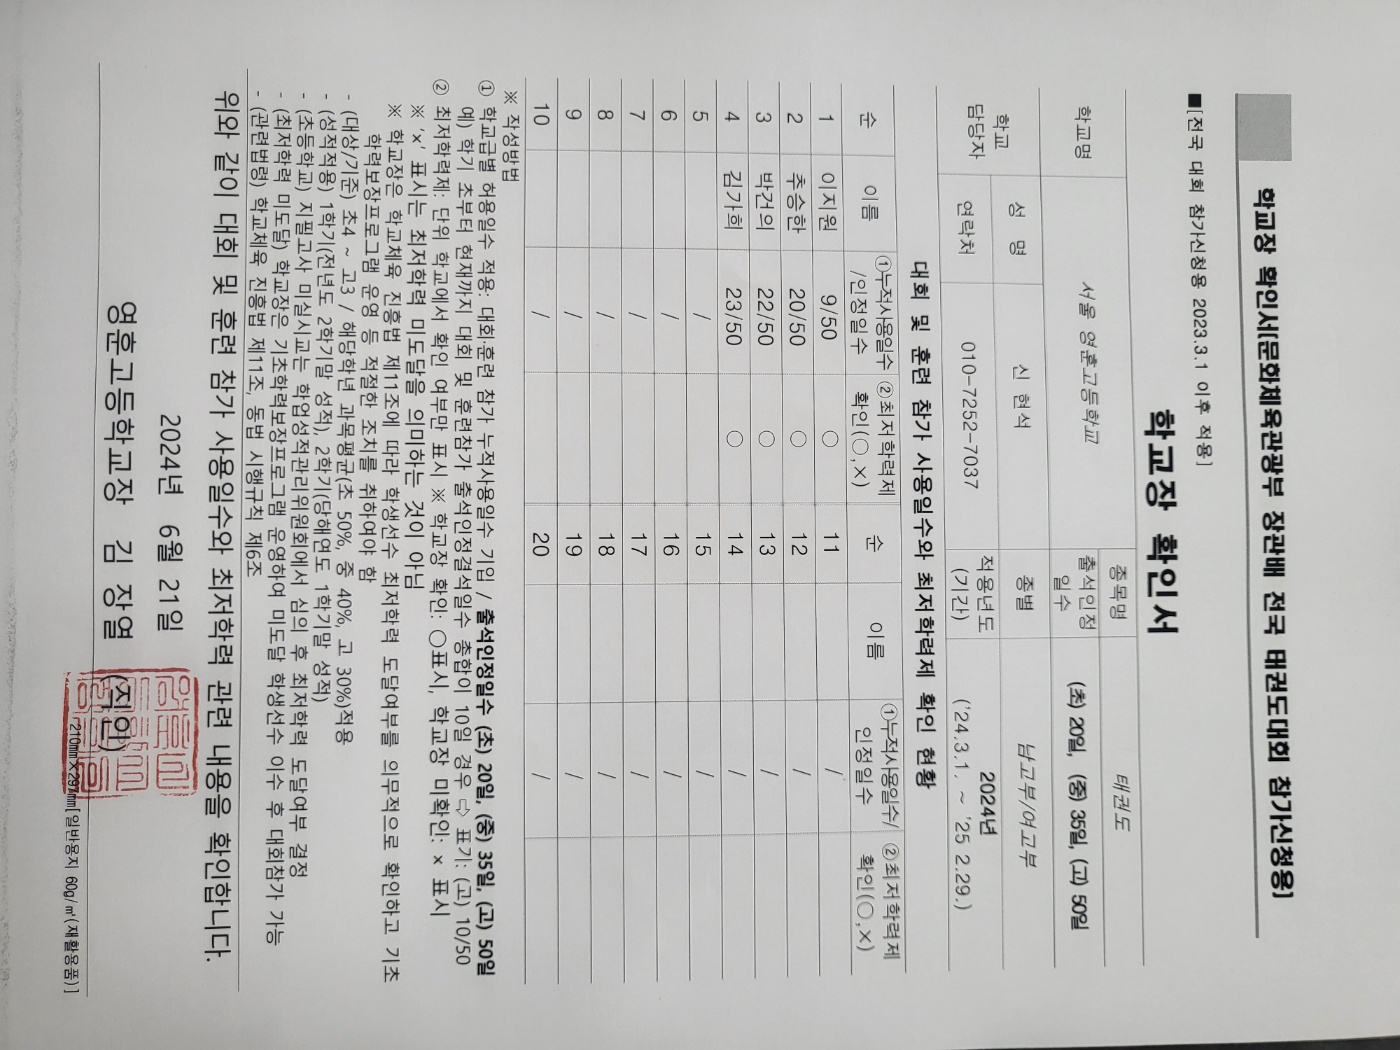 학교장 확인서[문화체육관광부 장관배 전국 태권도대회 참가신청용]
■[전국 대회 참가신청용 2023.3.1 이후 적용]
학교장 확인서
학교명 서울 영훈고등학교 종목명 태권도
출석인정일수 (초) 20일, (중) 35일, (고) 50일
학교 담당자 성 명 신 현석 종별 남고부/여고부
연락처 010-7252-7037 적용년도(기간) 2024년 ('24.3.1. ~ '25 2.29.)
대회 및 훈련 참가 사용일수와 최저학력제 확인 현황
순 이름 ①누적사용일수/인정일수 ②최저학력제 확인(○,×) 순 이름 ①누적사용일수/인정일수 ②최저학력제 확인(○,×)
1 이지원 9/50 ○ 11 /
2 추승한 20/50 ○ 12 /
3 박건의 22/50 ○ 13 /
4 김가희 23/50 ○ 14 /
5 / 15 /
6 / 16 /
7 / 17 /
8 / 18 /
9 / 19 /
10 / 20 /
※ 작성방법
① 학교급별 허용일수 적용: 대회.훈련 참가 누적사용일수 기입 / 출석인정일수 (초) 20일, (중) 35일, (고) 50일
예) 학기 초부터 현재까지 대회 및 훈련참가 출석인정결석일수 총합이 10일 경우 ⇨ 표기: (고) 10/50
② 최저학력제: 단위 학교에서 확인 여부만 표시 ※ 학교장 확인: ○표시, 학교장 미확인: × 표시
※ '×' 표시는 최저학력 미도달을 의미하는 것이 아님
※ 학교장은 학교체육 진흥법 제11조에 따라 학생선수 최저학력 도달여부를 의무적으로 확인하고 기초
학력보장프로그램 운영 등 적절한 조치를 취하여야 함
- (대상/기준) 초4 ~ 고3 / 해당학년 과목평균(초 50%, 중 40%, 고 30%)적용
- (성적적용) 1학기(전년도 2학기말 성적), 2학기(당해연도 1학기말 성적)
- (초등학교) 지필고사 미실시교는 학업성적관리위원회에서 심의 후 최저학력 도달여부 결정
- (최저학력 미도달) 학교장은 기초학력보장프로그램 운영하여 미도달 학생선수 이수 후 대회참가 가능
- (관련법령) 학교체육 진흥법 제11조, 동법 시행규칙 제6조
위와 같이 대회 및 훈련 참가 사용일수와 최저학력 관련 내용을 확인합니다.
2024년 6월 21일
영훈고등학교장 김 장열 (직인)
210㎜×297㎜[일반용지 60g/㎡(재활용품)]